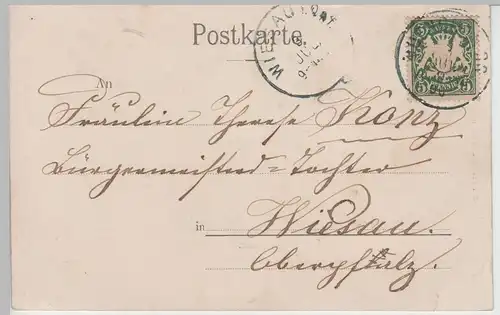 Postkarte
WIESAU
An
Fräulein Therese Konz
Bürgermeisters-Tochter
in Wiesau.
Oberpfalz.